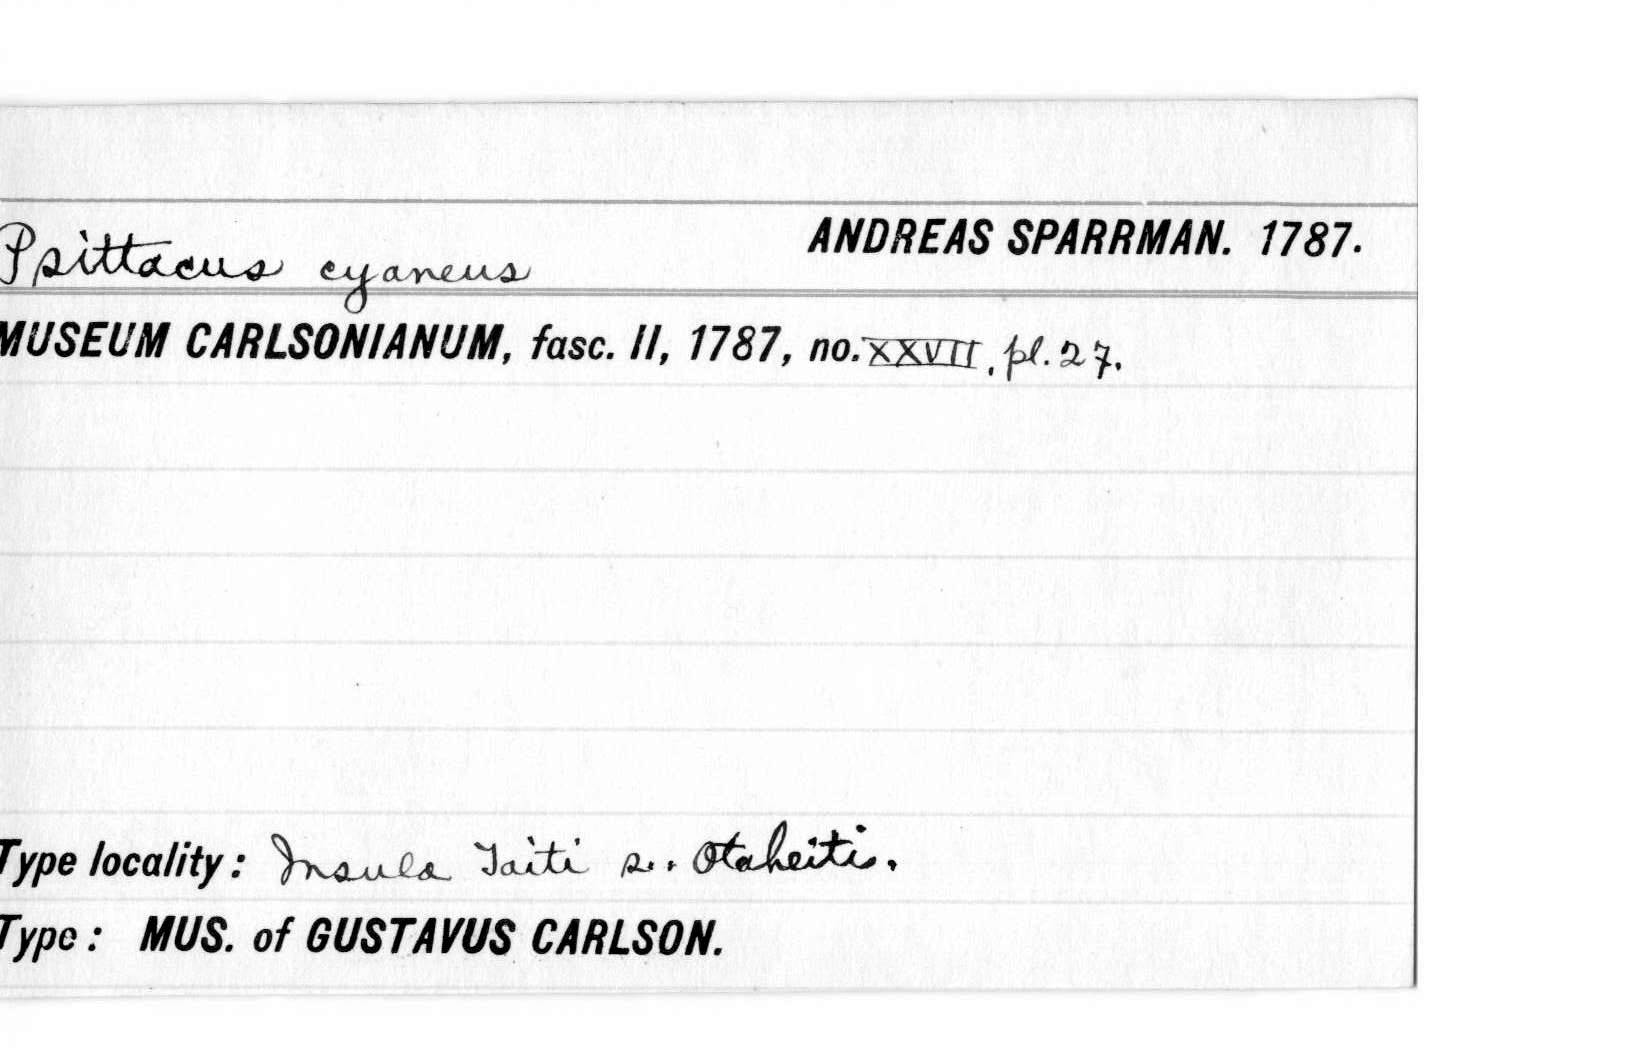 Psittacus cyaneus ANDREAS SPARRMAN. 1787.
MUSEUM CARLSONIANUM, fasc. II, 1787, no. XXVII, pl. 27.
Type locality: Insula Taiti s.. Otaheitis.
Type: MUS. of GUSTAVUS CARLSON.